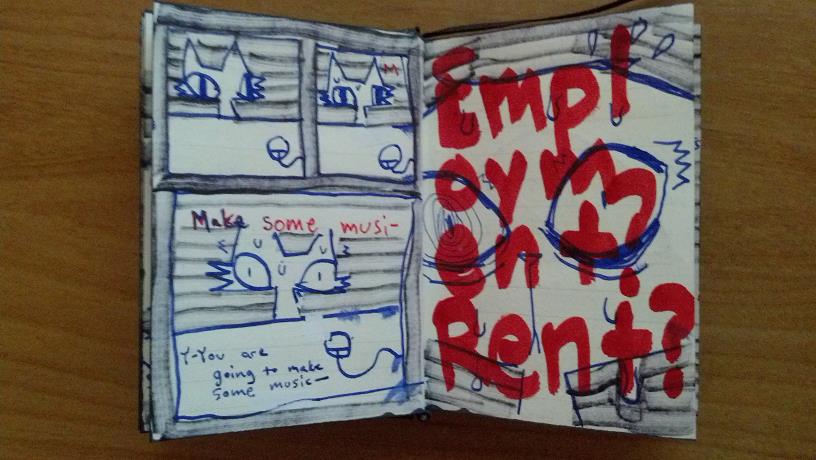 M
Make some musi-
Y-You are
going to make
some music—
Empl
oym
ent?
Rent?